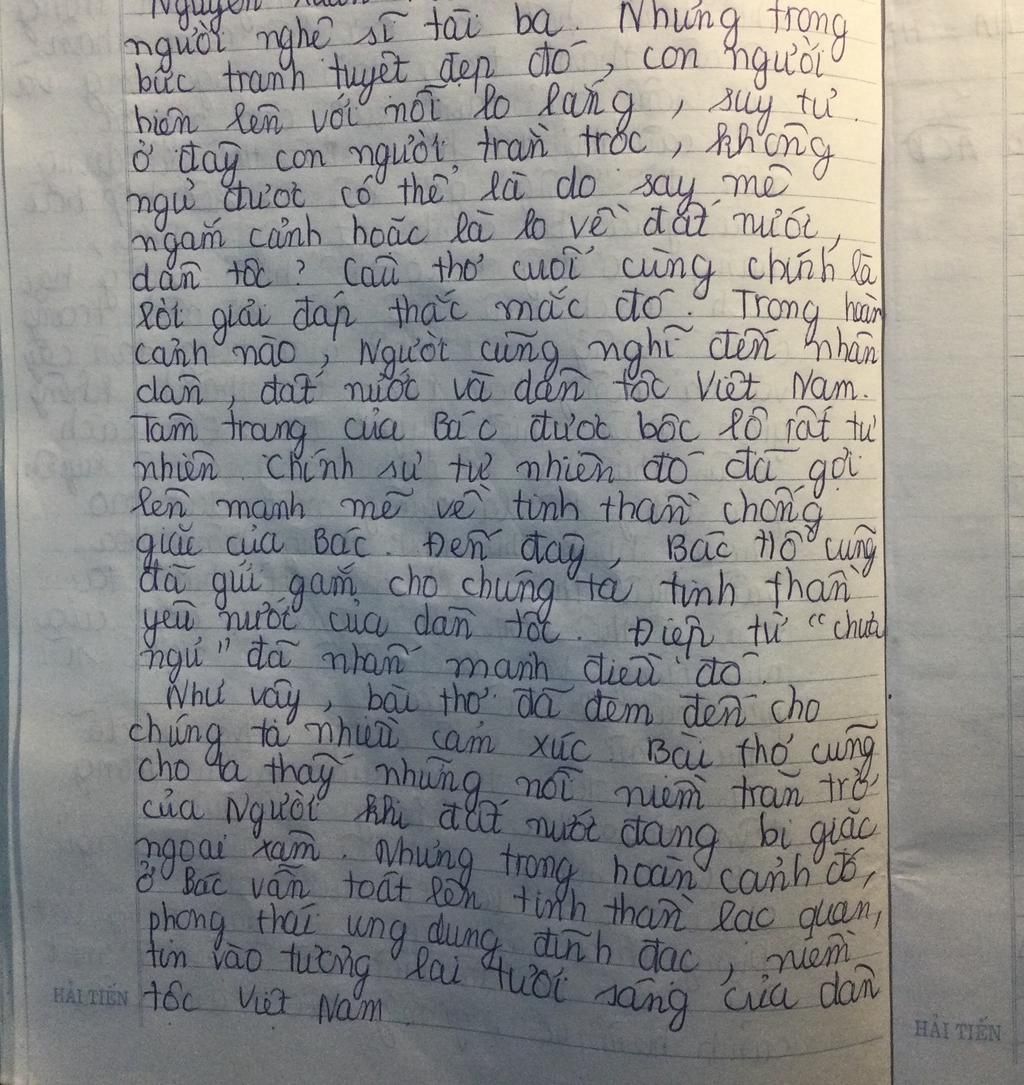 Nguyễn Xuân
người nghệ sĩ tài ba. Nhưng trong
bức tranh tuyệt đẹp đó, con người
hiện lên với nỗi lo lắng, suy tư.
Ở đây con người trằn trọc, không
ngủ được có thể là do say mê
ngắm cảnh hoặc là lo về đất nước,
dân tộc? Câu thơ cuối cùng chính là
lời giải đáp thắc mắc đó. Trong hoàn
cảnh nào, Người cũng nghĩ đến nhân
dân, đất nước và dân tộc Việt Nam.
Tâm trạng của Bác được bộc lộ rất tự
nhiên. Chính sự tự nhiên đó đã gợi
lên mạnh mẽ về tinh thần chống
giặc của Bác. Đến đây, Bác Hồ cũng
đã gửi gắm cho chúng ta tinh thần
yêu nước của dân tộc. Điệp từ "chưa
ngủ" đã nhấn mạnh điều đó.
Như vậy, bài thơ đã đem đến cho
chúng ta nhiều cảm xúc. Bài thơ cũng
cho ta thấy những nỗi niềm trăn trở
của Người khi đất nước đang bị giặc
ngoại xâm. Nhưng trong hoàn cảnh đó,
ở Bác vẫn toát lên tinh thần lạc quan,
phong thái ung dung đĩnh đạc, niềm
tin vào tương lai tươi sáng của dân
tộc Việt Nam.
HẢI TIẾN
HẢI TIẾN